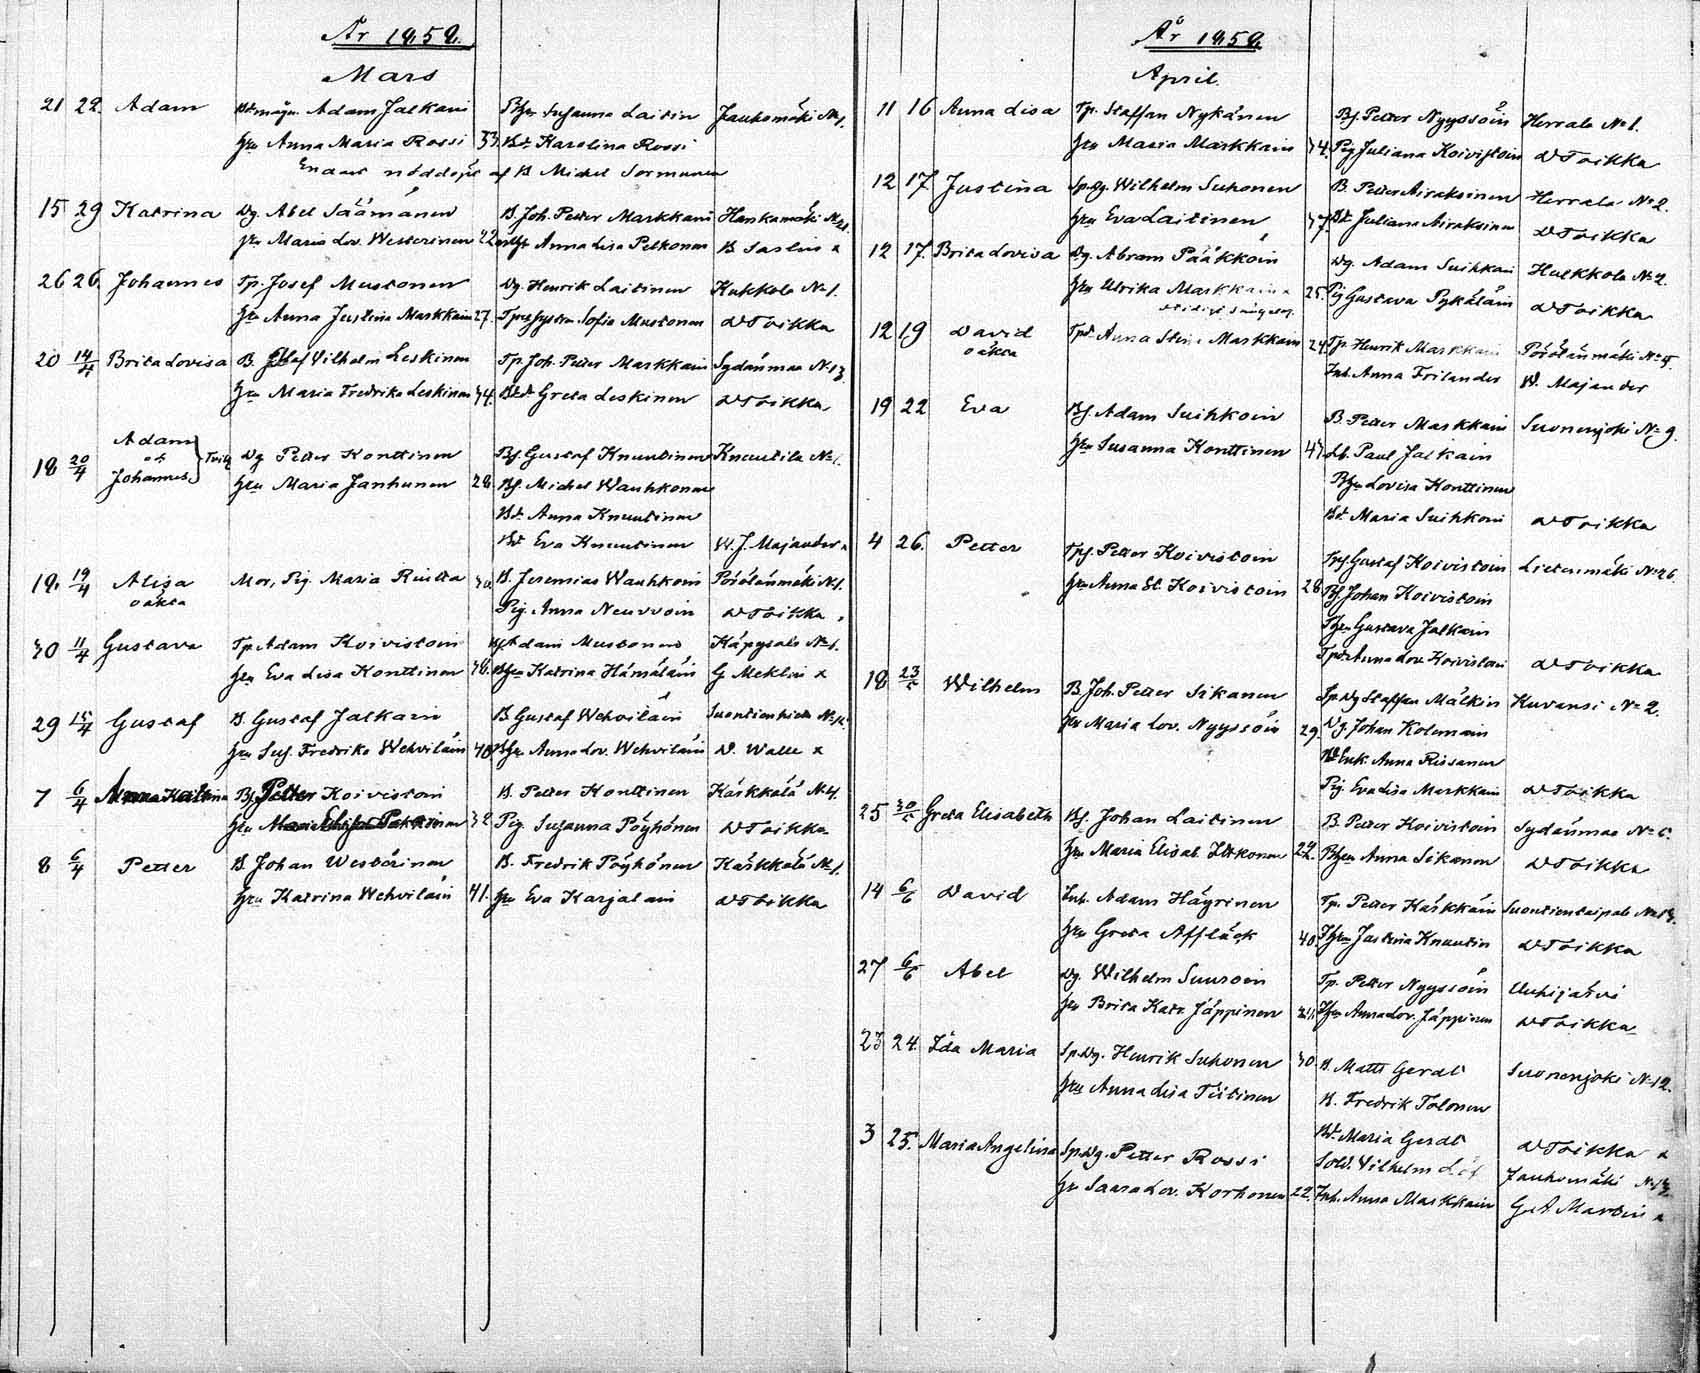 År 1858.
Mars
21 22. Adam Adam Jalkain Susanna Laitin Jauhomäki № 1.
Hu Anna Maria Rossi 33. Bd. Karolina Rossi
Endast nöddöpt af B Michel Sormunen
15 29 Katrina Dg. Abel Säämänen B. Joh. Petter Markkain Hankamäki
Hu Maria Lov. Westerinen 22 Anna Lisa Pelkonen
26 26. Johannes Tp. Josef Mustonen Dg. Henrik Laitinen Kukkola № 1.
Hu Anna Justina Markkain 27. Sofia Mustonen D Toikka
20 14/4 Brita Lovisa B. Olof Vilhelm Leskinen Tp. Joh. Petter Markkain Sydänmaa № 13
Hu Maria Fredrika Leskinen 34. Bd. Greta Leskinen D Toikka
18 20/4 Adam och Johannes } Tvill Dg Petter Konttinen Bf. Gustaf Knuutinen Knuutila № 1.
Hu Maria Janhunen 28. Bf. Michel Wauhkonen
Bd. Anna Knuutinen
Bd. Eva Knuutinen W. J. Majander
19/4 Alisa oäkta Mor, Pig. Maria Ruitta 30 B. Jeremias Wauhkoin Pörölänmäki № 1.
Pig. Anna Neuvoin D Toikka
30 11/4 Gustava Tp. Adam Koivistoin Adam Mustonen Käpysalo № 1.
Hu Eva Lisa Konttinen 38. Katrina Hämäläin G Meklin
29 15/4 Gustaf B. Gustaf Jalkain B Gustaf Wehviläin
Hu Sus. Fredrika Wehviläin 40 Anna Lov. Wehviläin D. Walle
7 6/4 Anna Katrina Bf. Petter Koivistoin B. Petter Konttinen Kärkkälä № 4.
Hu 32 Pig. Susanna Pöyhönen D Toikka
8 6/4 Petter B. Johan Westärinen B. Fredrik Pöyhönen Kärkkälä № 1.
Hu Katrina Wehviläin 41. Hu Eva Karjalain D Toikka
År 1858.
April.
11 16 Anna Lisa Tp. Staffan Nykänen Bf. Petter Nyyssöin Herrala № 1.
Hu Maria Markkain 34. Pig Juliana Koivistoin D Toikka
12 17. Justina Sp.Dg. Wilhelm Suhonen B. Petter Airaksinen Herrala № 2.
Hu Eva Laitinen 37. Bd. Juliana Airaksinen D Toikka
12 17. Brita Lovisa Dg. Abram Pääkköin Dg. Adam Suihkain Hulkkola № 2.
Hu Ulrika Markkain 25. Pig Gustava Pykäläin D Toikka
12 19 David oäkta Tpd. Anna Stina Markkain 24. Tp. Henrik Markkain Pörölänmäki № 4.
Inh. Anna Frilander W. Majander
19 22 Eva Bf Adam Suihkoin B. Petter Markkain Suonenjoki № 9.
Hu Susanna Konttinen 43 Paul Jalkain
Lovisa Konttinen
Bd. Maria Suihkoin D Toikka
4 26. Petter Tpf. Petter Koivistoin Tpf. Gustaf Koivistoin Lietenmäki № 26
Hu Anna El. Koivistoin 28. Bf. Johan Koivistoin
Gustava Jalkain
Tpd. Anna Lov. Koivistoin D Toikka
18 23/5 Wilhelm B. Joh. Petter Sikanen Sp.Dg Staffan Mälkin Kuvansi № 2.
Hu Maria Lov. Nyyssöin 29. Dg. Johan Kolemain
Enk. Anna Rissanen
Pig. Eva Lisa Markkain D Toikka
25 30/5 Greta Elisabeth Bf. Johan Laitinen B. Petter Koivistoin Sydänmaa
Hu Maria Elisab. Itkonen 24. Anna Sikanen D Toikka
14 6/6 David Inh. Adam Häyrinen Tp. Petter Kärkkäin Suontientaipale
Hu Greta Affläck 40. Justina Knuutin D Toikka
27 6/6 Abel Dg. Wilhelm Suuroin Tp. Petter Nyyssöin Uuhijärvi
Hu Brita Katr. Jäppinen Anna Lov. Jäppinen D Toikka
23 24. Ida Maria Sp.Dg. Henrik Suhonen 30. B. Matts Gerdt Suonenjoki № 12.
Hu Anna Lisa Tiitinen B. Fredrik Tolonen
Bd. Maria Gerdt D Toikka
3 25. Maria Angelina Sp.Dg. Petter Rossi Sold. Vilhelm Löf Jauhomäki
Hu Saara Lov. Korhonen 22. Inh. Anna Markkain G. A Martin